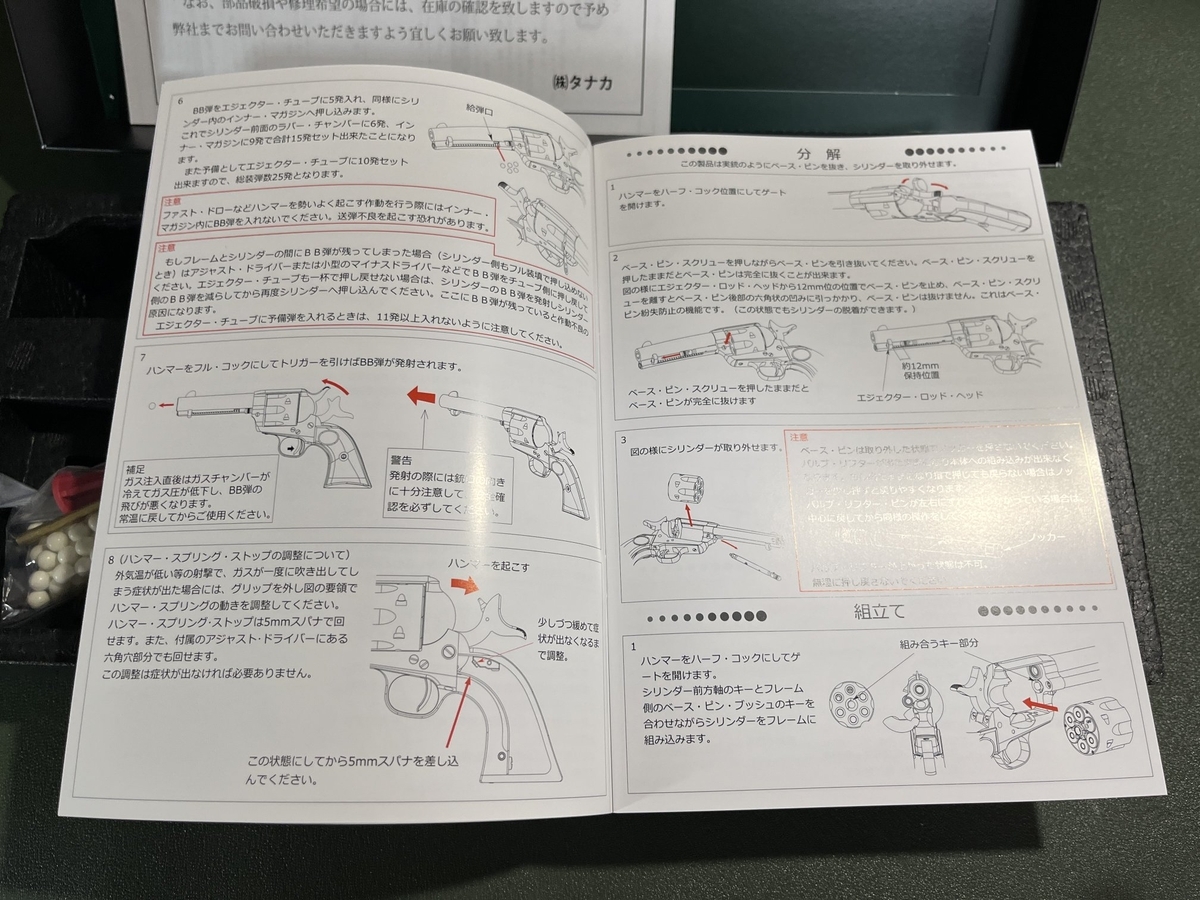 なお、部品破損や修理希望の場合には、在庫の確認を致しますので予め
弊社までお問い合わせいただきますよう宜しくお願い致します。
㈱タナカ
6
BB弾をエジェクター・チューブに5発入れ、同様にシリ
ンダー内のインナー・マガジンへ押し込みます。
これでシリンダー前面のラバー・チャンバーに6発、イン
ナー・マガジンに9発で合計15発セット出来たことになり
ます。
また予備としてエジェクター・チューブに10発セット
出来ますので、総装弾数25発となります。
給弾口
注意
ファスト・ドローなどハンマーを勢いよく起こす作動を行う際にはインナー・
マガジン内にBB弾を入れないでください。送弾不良を起こす恐れがあります。
注意
もしフレームとシリンダーの間にＢＢ弾が残ってしまった場合（シリンダー側もフル装填で押し込めない
とき）はアジャスト・ドライバーまたは小型のマイナスドライバーなどでＢＢ弾をチューブ側に押し戻して
ください。エジェクター・チューブも一杯で押し戻せない場合は、シリンダーのＢＢ弾を発射しシリンダー
側のＢＢ弾を減らしてから再度シリンダーへ押し込んでください。ここにＢＢ弾が残っていると作動不良の
原因になります。
エジェクター・チューブに予備弾を入れるときは、11発以上入れないように注意してください。
7
ハンマーをフル・コックにしてトリガーを引けばBB弾が発射されます。
補足
ガス注入直後はガスチャンバーが
冷えてガス圧が低下し、BB弾の
飛びが悪くなります。
常温に戻してからご使用ください。
警告
発射の際には銃
き
に十分注意して、
確
認を必ずしてください。
8（ハンマー・スプリング・ストップの調整について）
外気温が低い等の射撃で、ガスが一度に吹き出してし
まう症状が出た場合には、グリップを外し図の要領で
ハンマー・スプリングの動きを調整してください。
ハンマー・スプリング・ストップは5mmスパナで回
せます。また、付属のアジャスト・ドライバーにある
六角穴部分でも回せます。
この調整は症状が出なければ必要ありません。
ハンマーを起こす
少しづつ緩めて症
状が出なくなるま
で調整。
この状態にしてから5mmスパナを差し込
んでください。
分 解
この製品は実銃のようにベース・ピンを抜き、シリンダーを取り外せます。
1
ハンマーをハーフ・コック位置にしてゲート
を開けます。
2
ベース・ピン・スクリューを押しながらベース・ピンを引き抜いてください。ベース・ピン・スクリューを
押したままだとベース・ピンは完全に抜くことが出来ます。
図の様にエジェクター・ロッド・ヘッドから12mm位の位置でベース・ピンを止め、ベース・ピン・スクリ
ューを離すとベース・ピン後部の六角状の凹みに引っかかり、ベース・ピンは抜けません。これはベース・
ピン紛失防止の機能です。（この状態でもシリンダーの脱着ができます。）
ベース・ピン・スクリューを押したままだと
ベース・ピンが完全に抜けます
約12mm
保持位置
エジェクター・ロッド・ヘッド
3
図の様にシリンダーが取り外せます。
注意
ベース・ピンは取り外した状態で
バルブ・リフター
本体への組み込みが出来なく
バルブ・リフター・ピンが左右
っている場合は、
中心に戻してから同様の操作を
ノッカー
状態は不可。
無理に押し戻さないでください
組立て
1
ハンマーをハーフ・コックにしてゲ
ートを開けます。
シリンダー前方軸のキーとフレーム
側のベース・ピン・ブッシュのキーを
合わせながらシリンダーをフレームに
組み込みます。
組み合うキー部分